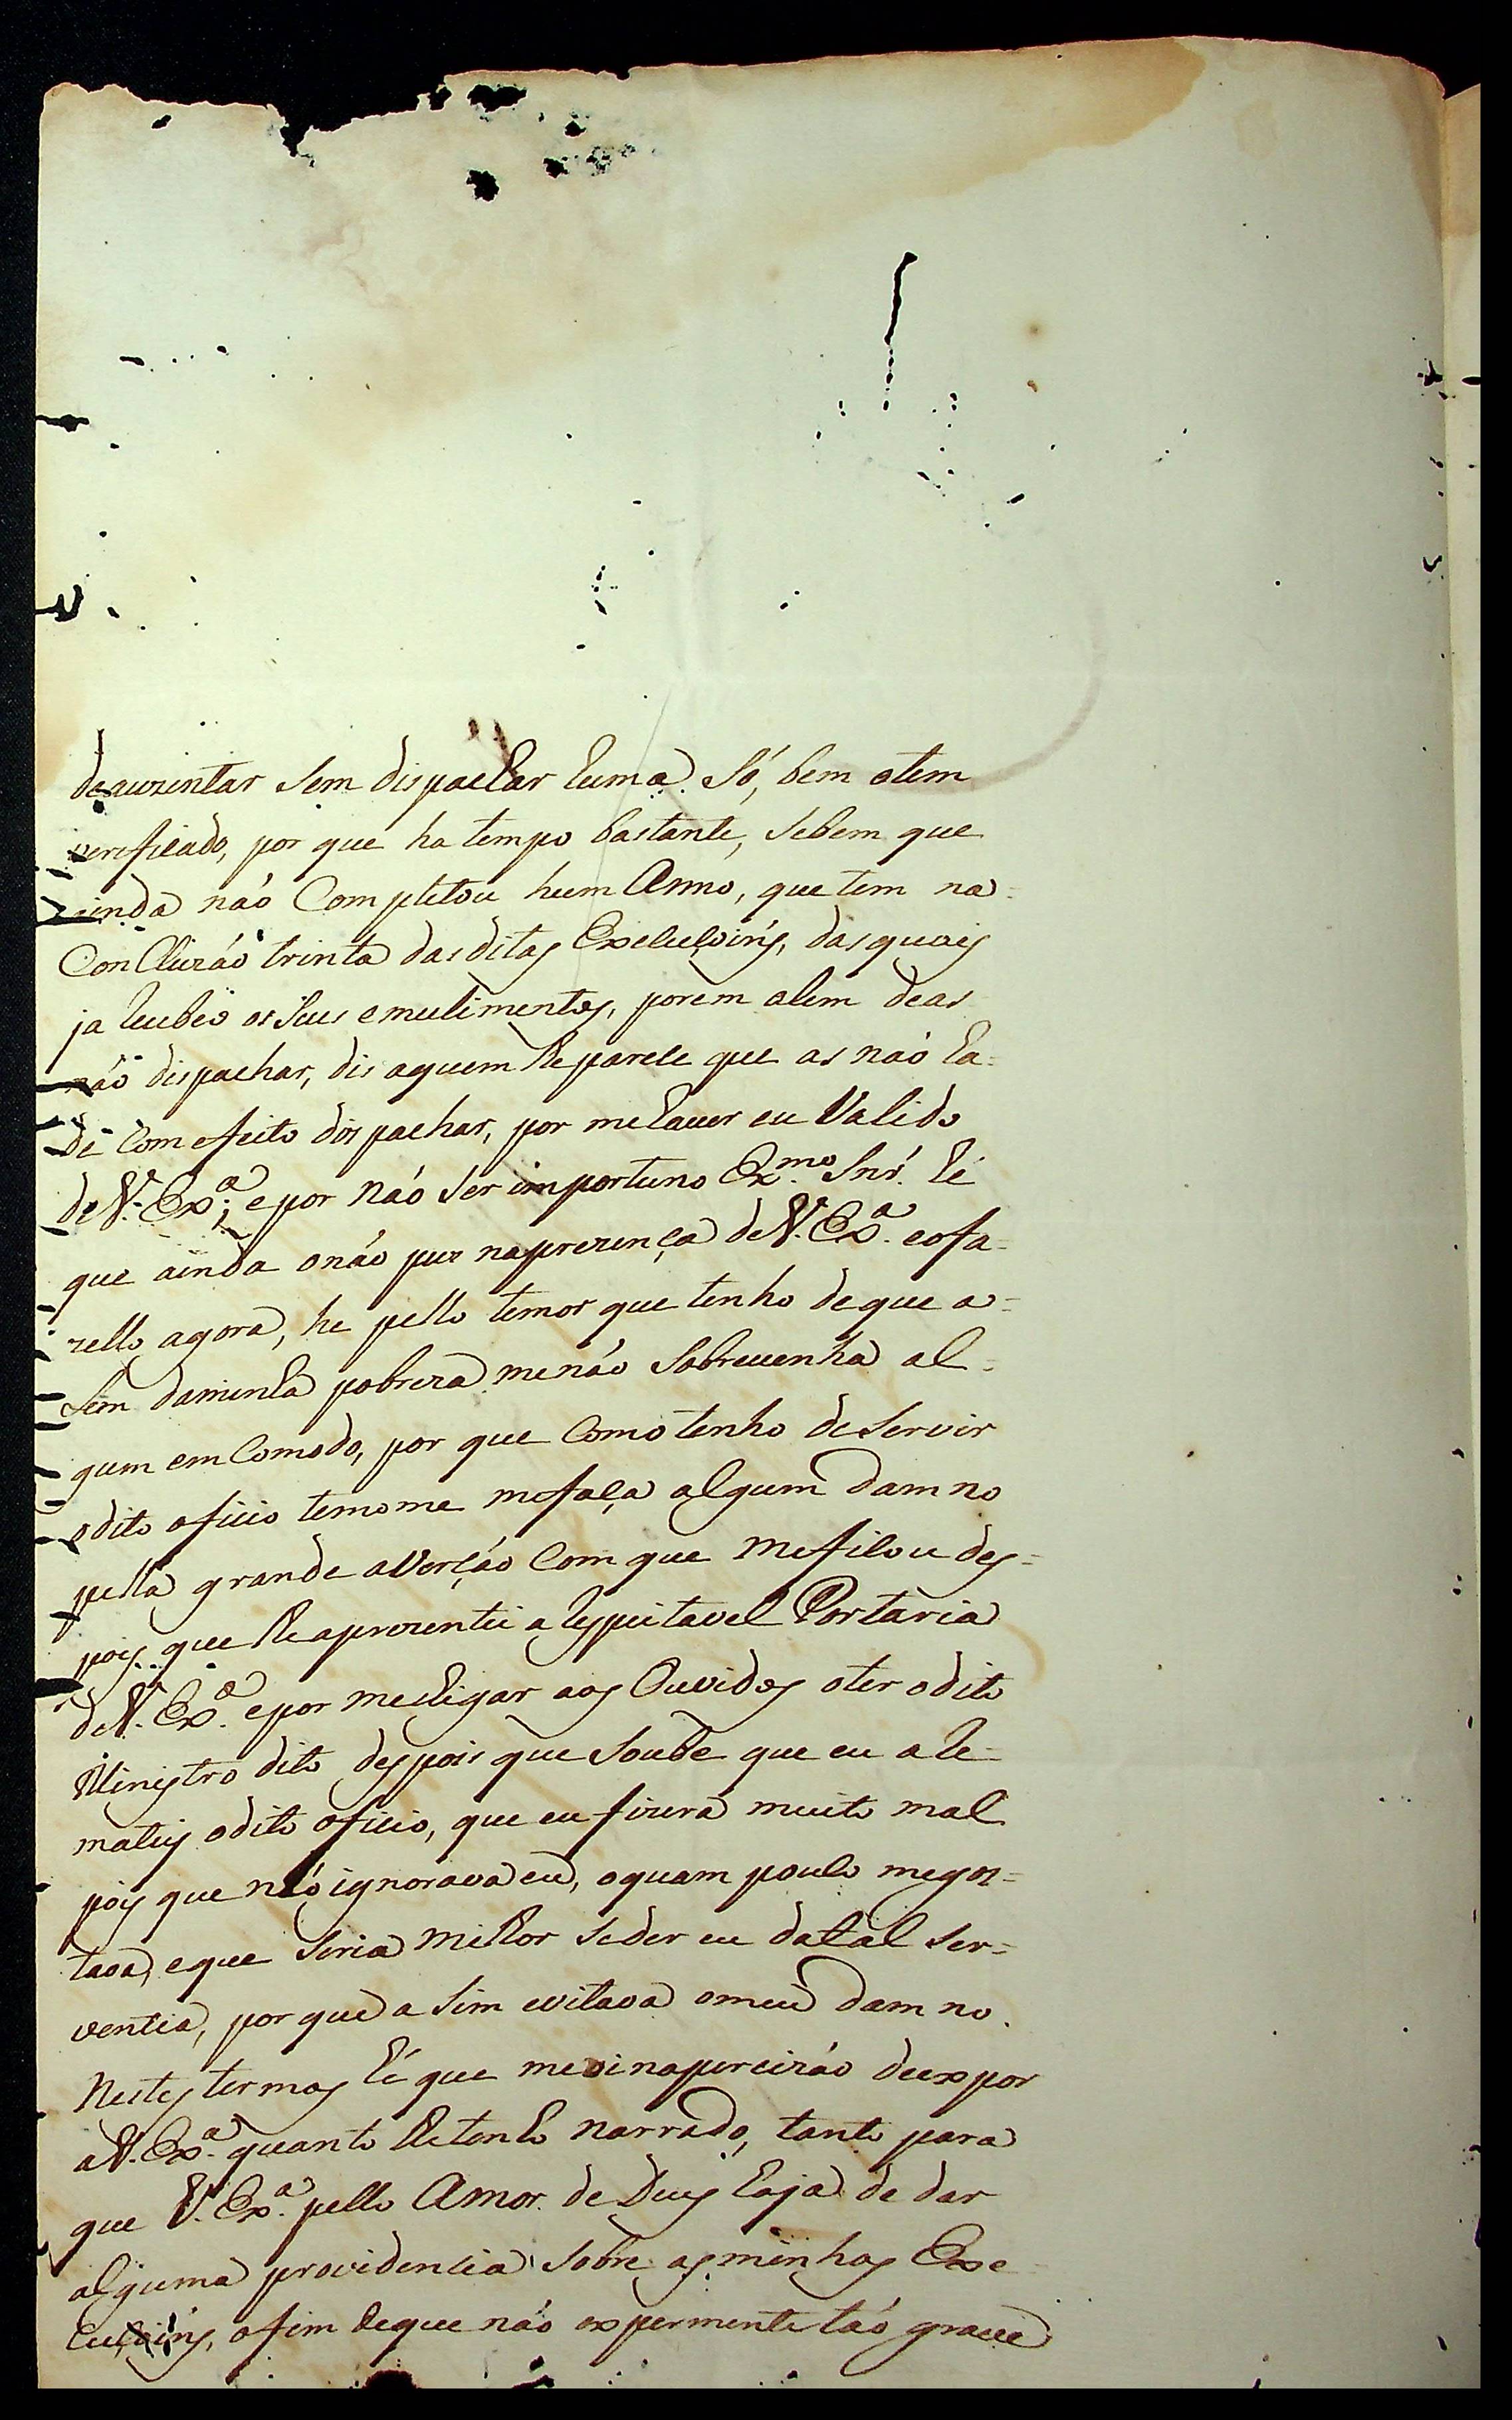 de auzentar sem dispachar huma só, bem otem
verificado, por que ha tempo bastante, sebem que
ainda náo Completou hum Anno, que tem na
Concluzáo trinta das ditas Execuçoins, das quais
ja recebeo os Seus emulimentos, porem alem deas
náo dispachar, dis aquem lhe parece que as naó ha=
de Com efeito dispachar, por mehaver eu Valido
deV. Ex.ª; epor náo ser importuno Ex.mo Snr. hé
que ainda onáo puz naprezença deV. Ex.ª eofa=
zello agora, he pello temor que tenho deque a=
sim daminha pobreza menáo Sobrevenha al=
gum emComodo, por que Como tenho deServir
odito oficio temome mefaça algum damno
pella grande aVerçáo Com que meficou des=
pois que lhe aprezentei a respeitavel Portaria
deV. Ex.ª epor mechegar aos Ouvidos oter odito
Ministro dito despois que Soube que eu are=
matey odito oficio, que eu fizera muito mal
pois que náo ignorava eu, oquam pouco megos=
tava, eque Seria milhor seder eu datal ser=
ventia, por que asim evitava omeu damno.
Nestes termos hé que meoi naprecizáo deexpor
aV. Ex.ª quanto lhetenho narrado, tanto para
que V. Ex.ª pello Amor de Deus haja de dar
alguma providencia Sobre as minhas Exe
cuçoins, afim deque náo expermente taó grave